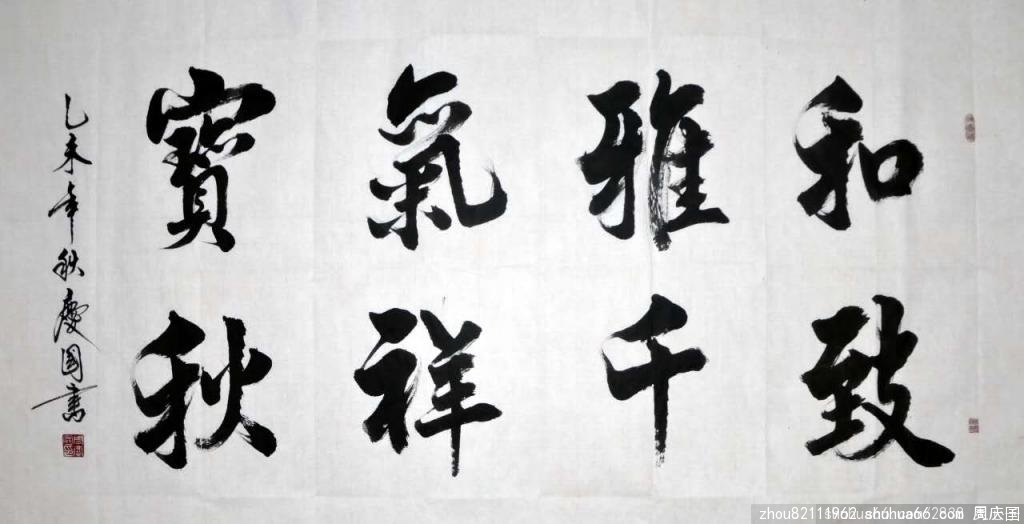 和致
雅千
氣祥
寶秋
乙未年秋慶國書
周庆国